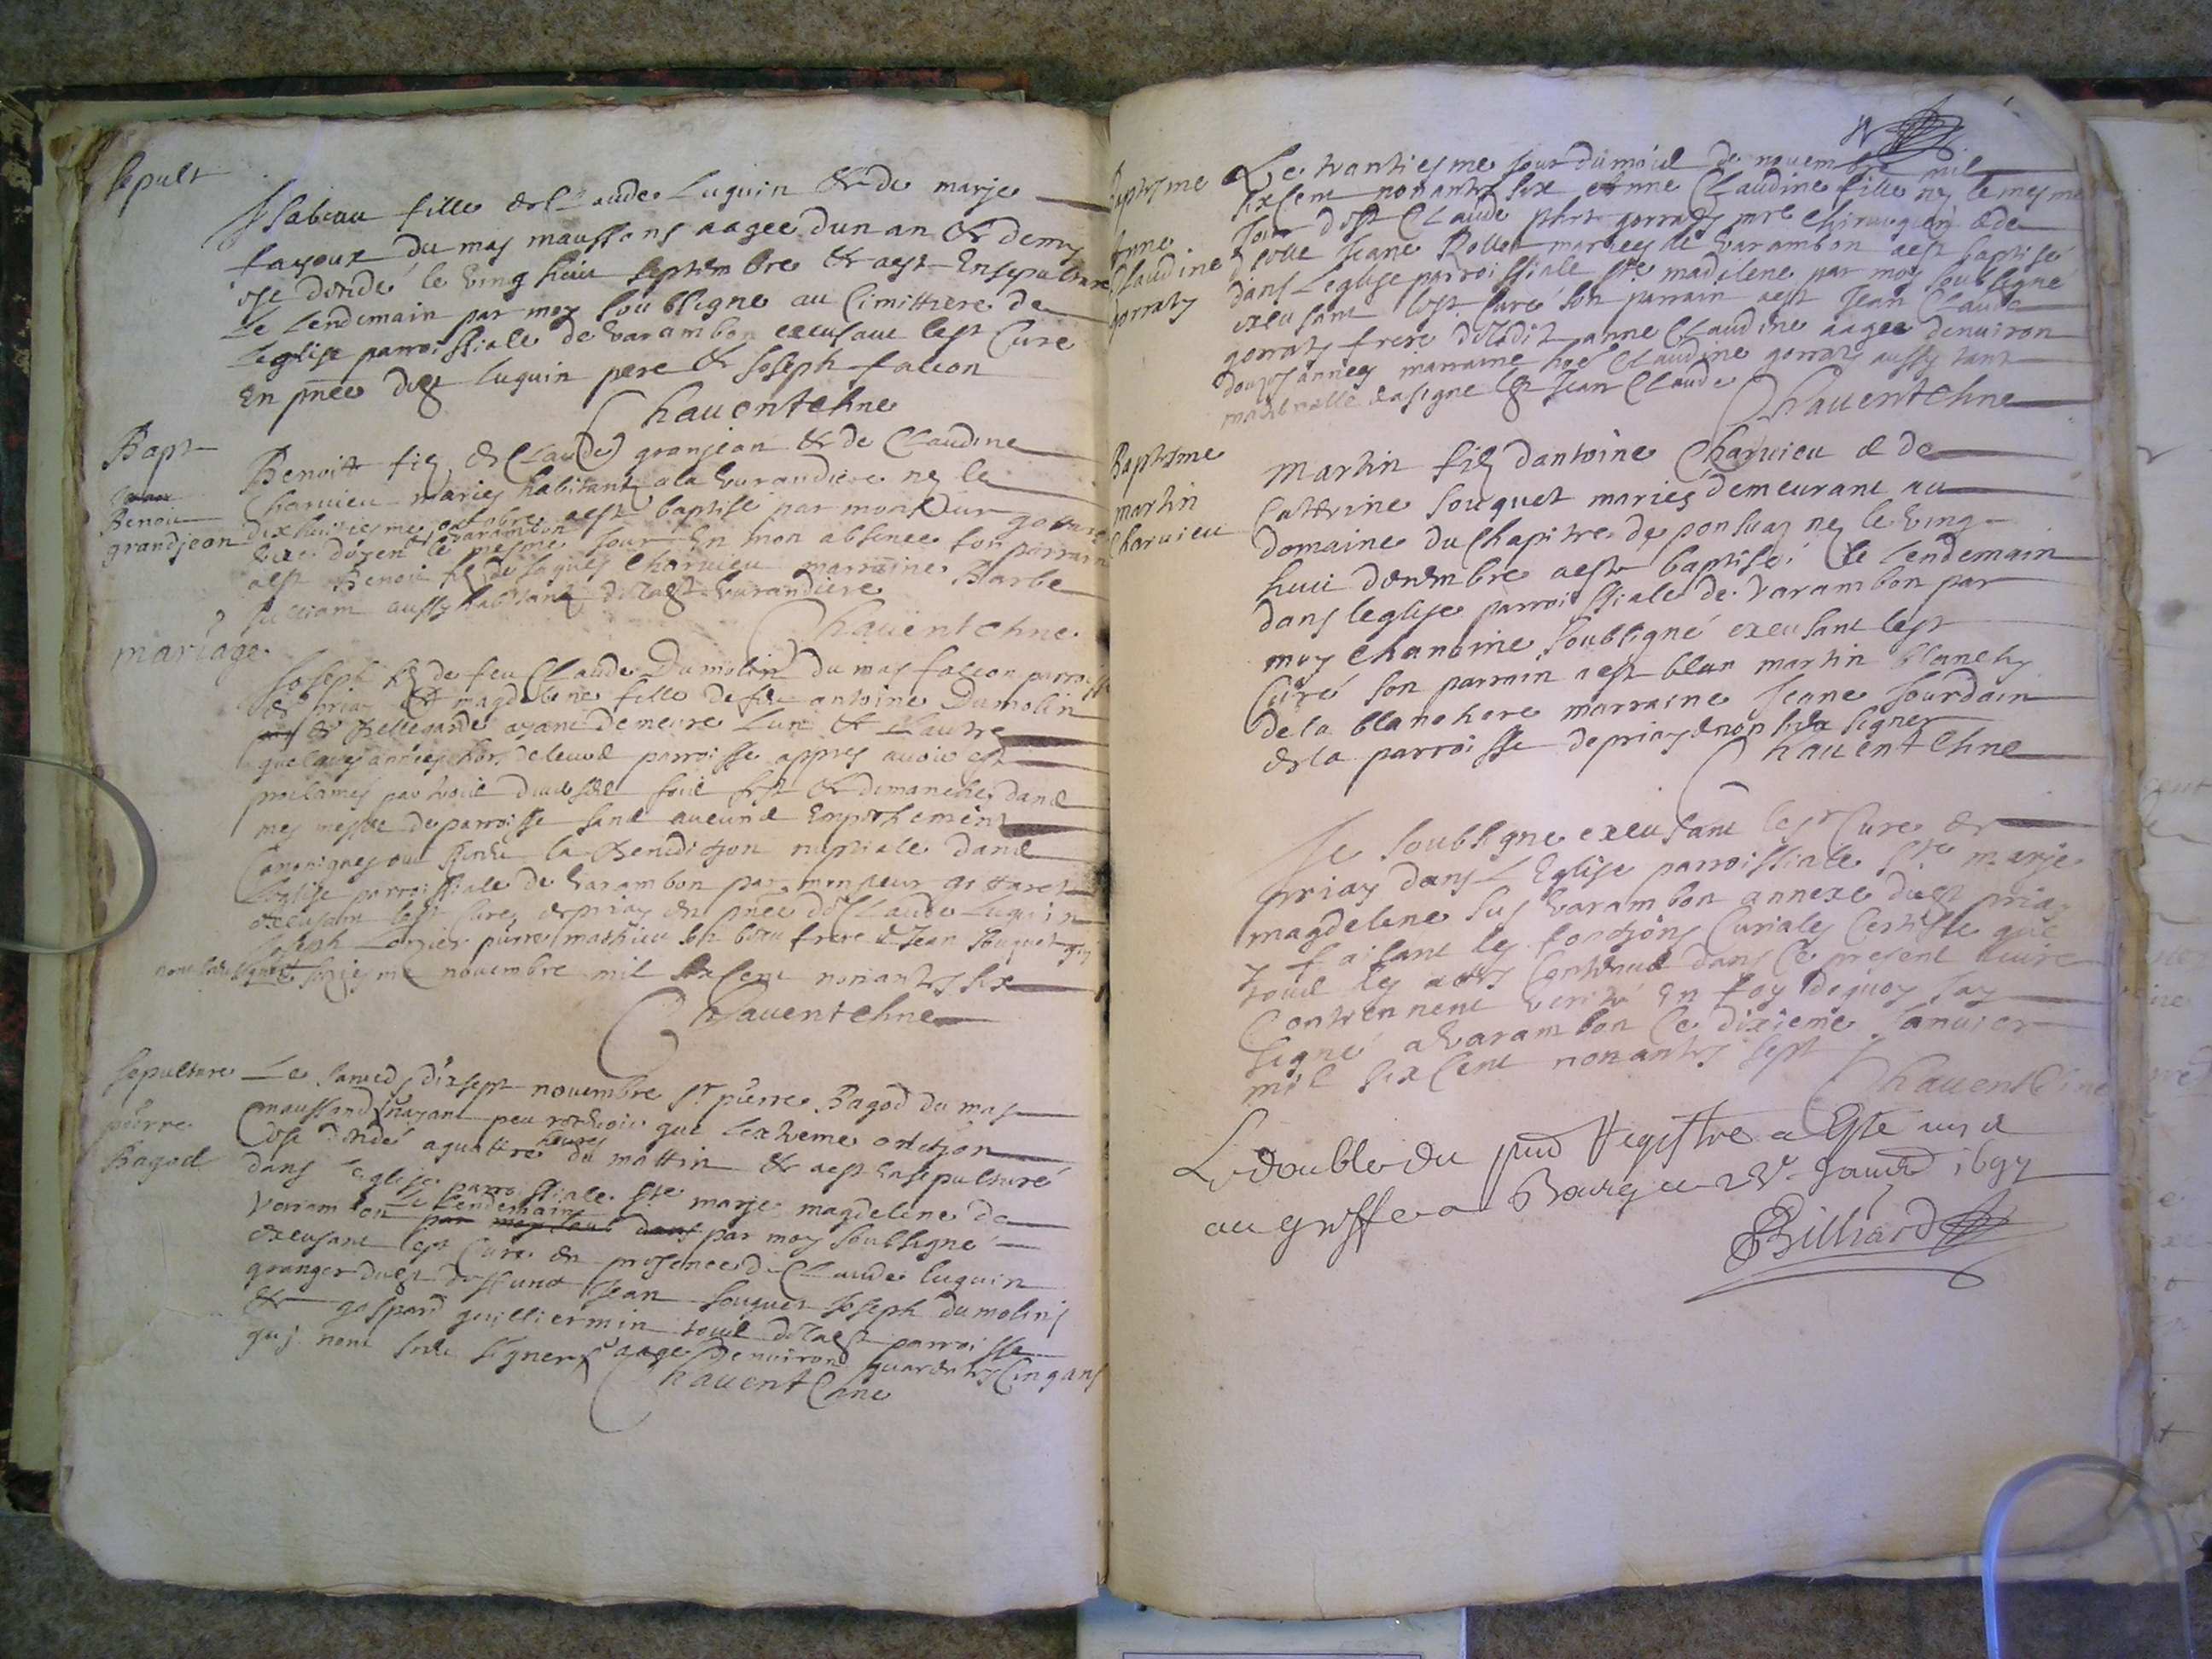 sepult
Isabeau fille de Claude Luguin & de marje
fayoux du mas maussans aagee dun an & demy
ese decedé le ving huit septembre & aest Ensepulturé
Le Lendemain par moy soubsigne au Cimittiere de
Leglise parroissiale de varambon excusant lest Cure
En pnce duet luguin pere & Joseph falcon
Chaventehne
Bapt
Benoit
grandjean
Benoitt fiz de Claude granjean & de Claudine
Charvieu mariez habitant a la verandiere ne le
dixhuitiesme octobre aest baptisé par monsieur
varambon
le mesme Jour En mon absence son parrain
aest Benoit fiz de Jaques Charvieu marraine Barbe
Julliam aussy habitant verandiere
Chaventehne
mariage
Joseph fiz de feu Claude Dumolin du mas falcon parroisse
de priay & magdelene fille de feu antoine Dumolin
de Bellegarde ayant demeure Lun & Lautre
quelques annees hors parroisse appres avoir est
proclames par trois diverses fois fest & dimanche dans
mes messes de parroisse sans aucuns Empechement
Canoniques ont la Benediction nuptiale dans
Leglise parroissiale de varambon par monsieur
excusant lest Cure de priay en pnce de Claude Luguin
Joseph pierre mathieu son beau frere & Jean souquet quj
nont sceu signer Le novembre mil six cent nonante six
Chaventehne
sepulture
pierre
Bagod
Le samedj dixsept novembre Sr pierre Bagod du mas
maussand nayant peu recevoir que Lextreme onctjon
dese decedé a quattre heures du mattin & aest Ensepulturé
dans Leglise parroissiale Ste marje magdelene de
Varambon Le Lendemain par moy soubsigné
excusant lest Cure en presence de Claude luguin
granger duet deffunct Jean souquet Joseph dumolins
& gaspard guilliermin tous parroisse
quj nont sceu signer aage denviron quarente Cinq ans
Chaventehne
Baptesme
anne
Claudine
gorraty
Le trantiesme Jour du mois de novembre mil
sixcent nonante six Anne Claudine fille ne le mesme
Jour dest Claude gorraty mre Chirurgien & de
Jeane Rollet mariees de varambon aest baptisé
dans Leglise parroissiale Ste madelene par moy soubsigné
excusant lest Curé son parrain aest Jean Claude
gorraty frere anne Claudine aagee denviron
douze annees marraine Claudine gorraty aussy tante
Jean Claude
Chaventehne
Baptesme
martin
Charvieu
Martin fiz dantoine Charvieu & de
Catterine souquet mariez demeurant au
domaine du Chapitre de ponsuaz ne le ving
huit aest baptisé Le Lendemain
dans leglise parroissiale de varambon par
moy Chanoine soubsigné excusant lest
Curé son parrain aest martin blanchy
de la blanchere marraine Jeane Jourdain
de la parroisse de priay & non sceu signer
Chaventehne
Je soubsigne excusant lesr Cure de
priay dans LEglise parroissiale Ste marje
magdelene sus varambon annexe duet priay
y faisant les fonctjons Curiales Certiffie que
tous les actes Contenus dans Ce present livre
Contiennent verité En foy dequoy Jay
signé a varambon Ce dixieme Janvier
mil six Cent nonante sept
Chaventehne
Le double du pnt Registre a Esté mis
au greffe a Bourg ce Janvier 1697
Billiard